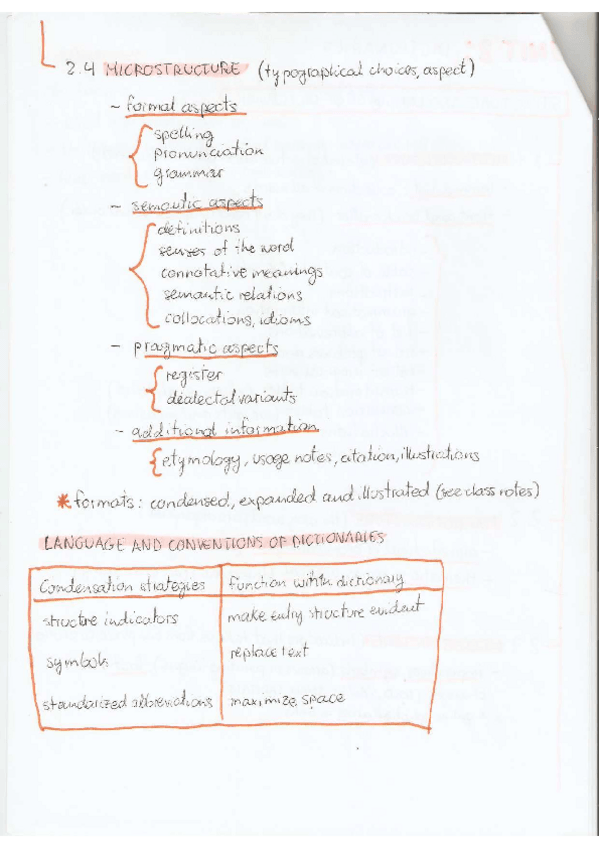 2.4 MICROSTRUCTURE (typographical choices, aspect)
- formal aspects
spelling
pronunciation
grammar
- semantic aspects
definitions
senses of the word
connotative meanings
semantic relations
collocations, idioms
- pragmatic aspects
register
dialectal variants
- additional information
etymology, usage notes, citation, illustrations
* formats: condensed, expanded and illustrated (see class notes)
LANGUAGE AND CONVENTIONS OF DICTIONARIES
Condensation strategies function within dictionary
structure indicators make entry structure evident
symbols replace text
standarized abbreviations maximize space